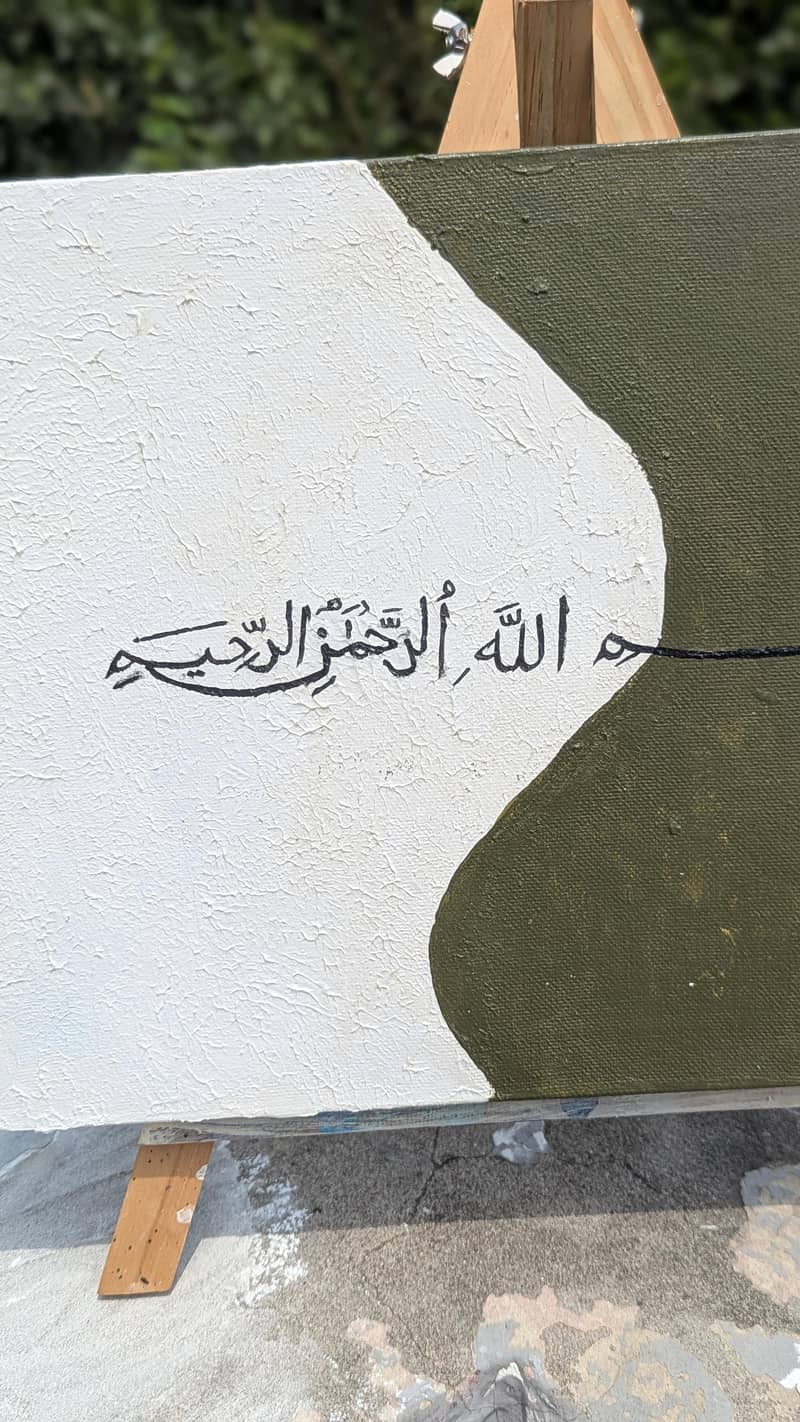 ـم اللَّهِ الرَّحْمَٰنِ الرَّحِيمِ